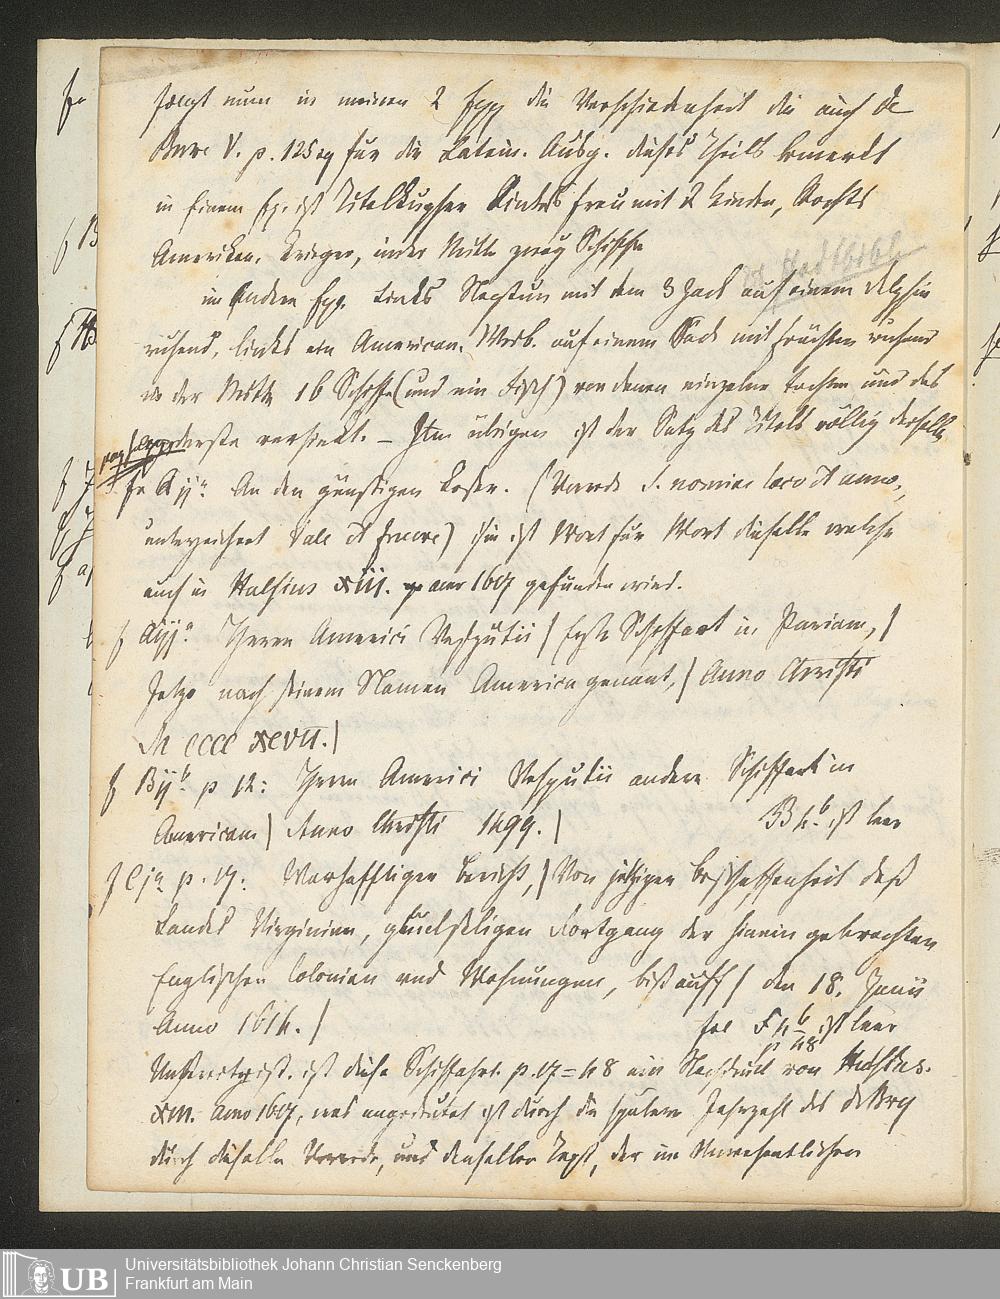 folgt nun in meinen 2 Expp die Verschiedenheit die auch De
Bure V. p. 125 sq für die Latein. Ausg. dieses Theils bemerkt
in Einem Ex. ist Titelkupfer Links Frau mit 2 Kinder, Rechts
American. Krieger, in der Mitte zwey Schiffe
Stadtbibl.
im Andern Exp. Links Neptun mit dem 3 Zack auf einem Delphin
ruhend, links ein American. Weib. auf einem Sack mit Früchten ruhend
in der Mitte 16 Schiffe (und ein Fisch) von denen einzelne fechten und das
vorderste versinkt. – Im übrigen ist der Satz des Titels völlig derselbe
fr Aijª. An den günstigen Leser. (Vorrede S. nomine loco et anno,
unterzeichnet Vale et fruere) sie ist Wort für Wort dieselbe welche
auch in Hulsius XIII. anno 1617 gefunden wird.
f Aiijª Herrn Americi Vesputii / Erste Schiffart in Pariam, /
Jetzo nach seinem Namen America genant, / Anno Christi
M cccc xcvII. /
f Biijb. p 12: Herrn Americi Vesputii andere Schiffart in
Americam / Anno Christi 1499. / B4.b ist leer
f Cjª p. 17. Warhafftiger Bericht, / Von jetziger Beschaffenheit deß
Landes Virginien, glückseligen Fortgang der hinein gebrachten
Englischen Colonien und Wohnungen, biß auff / den 18. Junii
Anno 1614. / fol F 4 b ist leer
p 48
ist diese Schiffahrt p. 17 = 48 ein Nachdruck von Hulsius.
XIII. Anno 1617, was angedeutet ist durch die spätere Jahrzahl des de Bry
durch dieselbe Vorrede, und denselben Text, der im Unwesentlichen
Universitätsbibliothek Johann Christian Senckenberg
Frankfurt am Main
UB